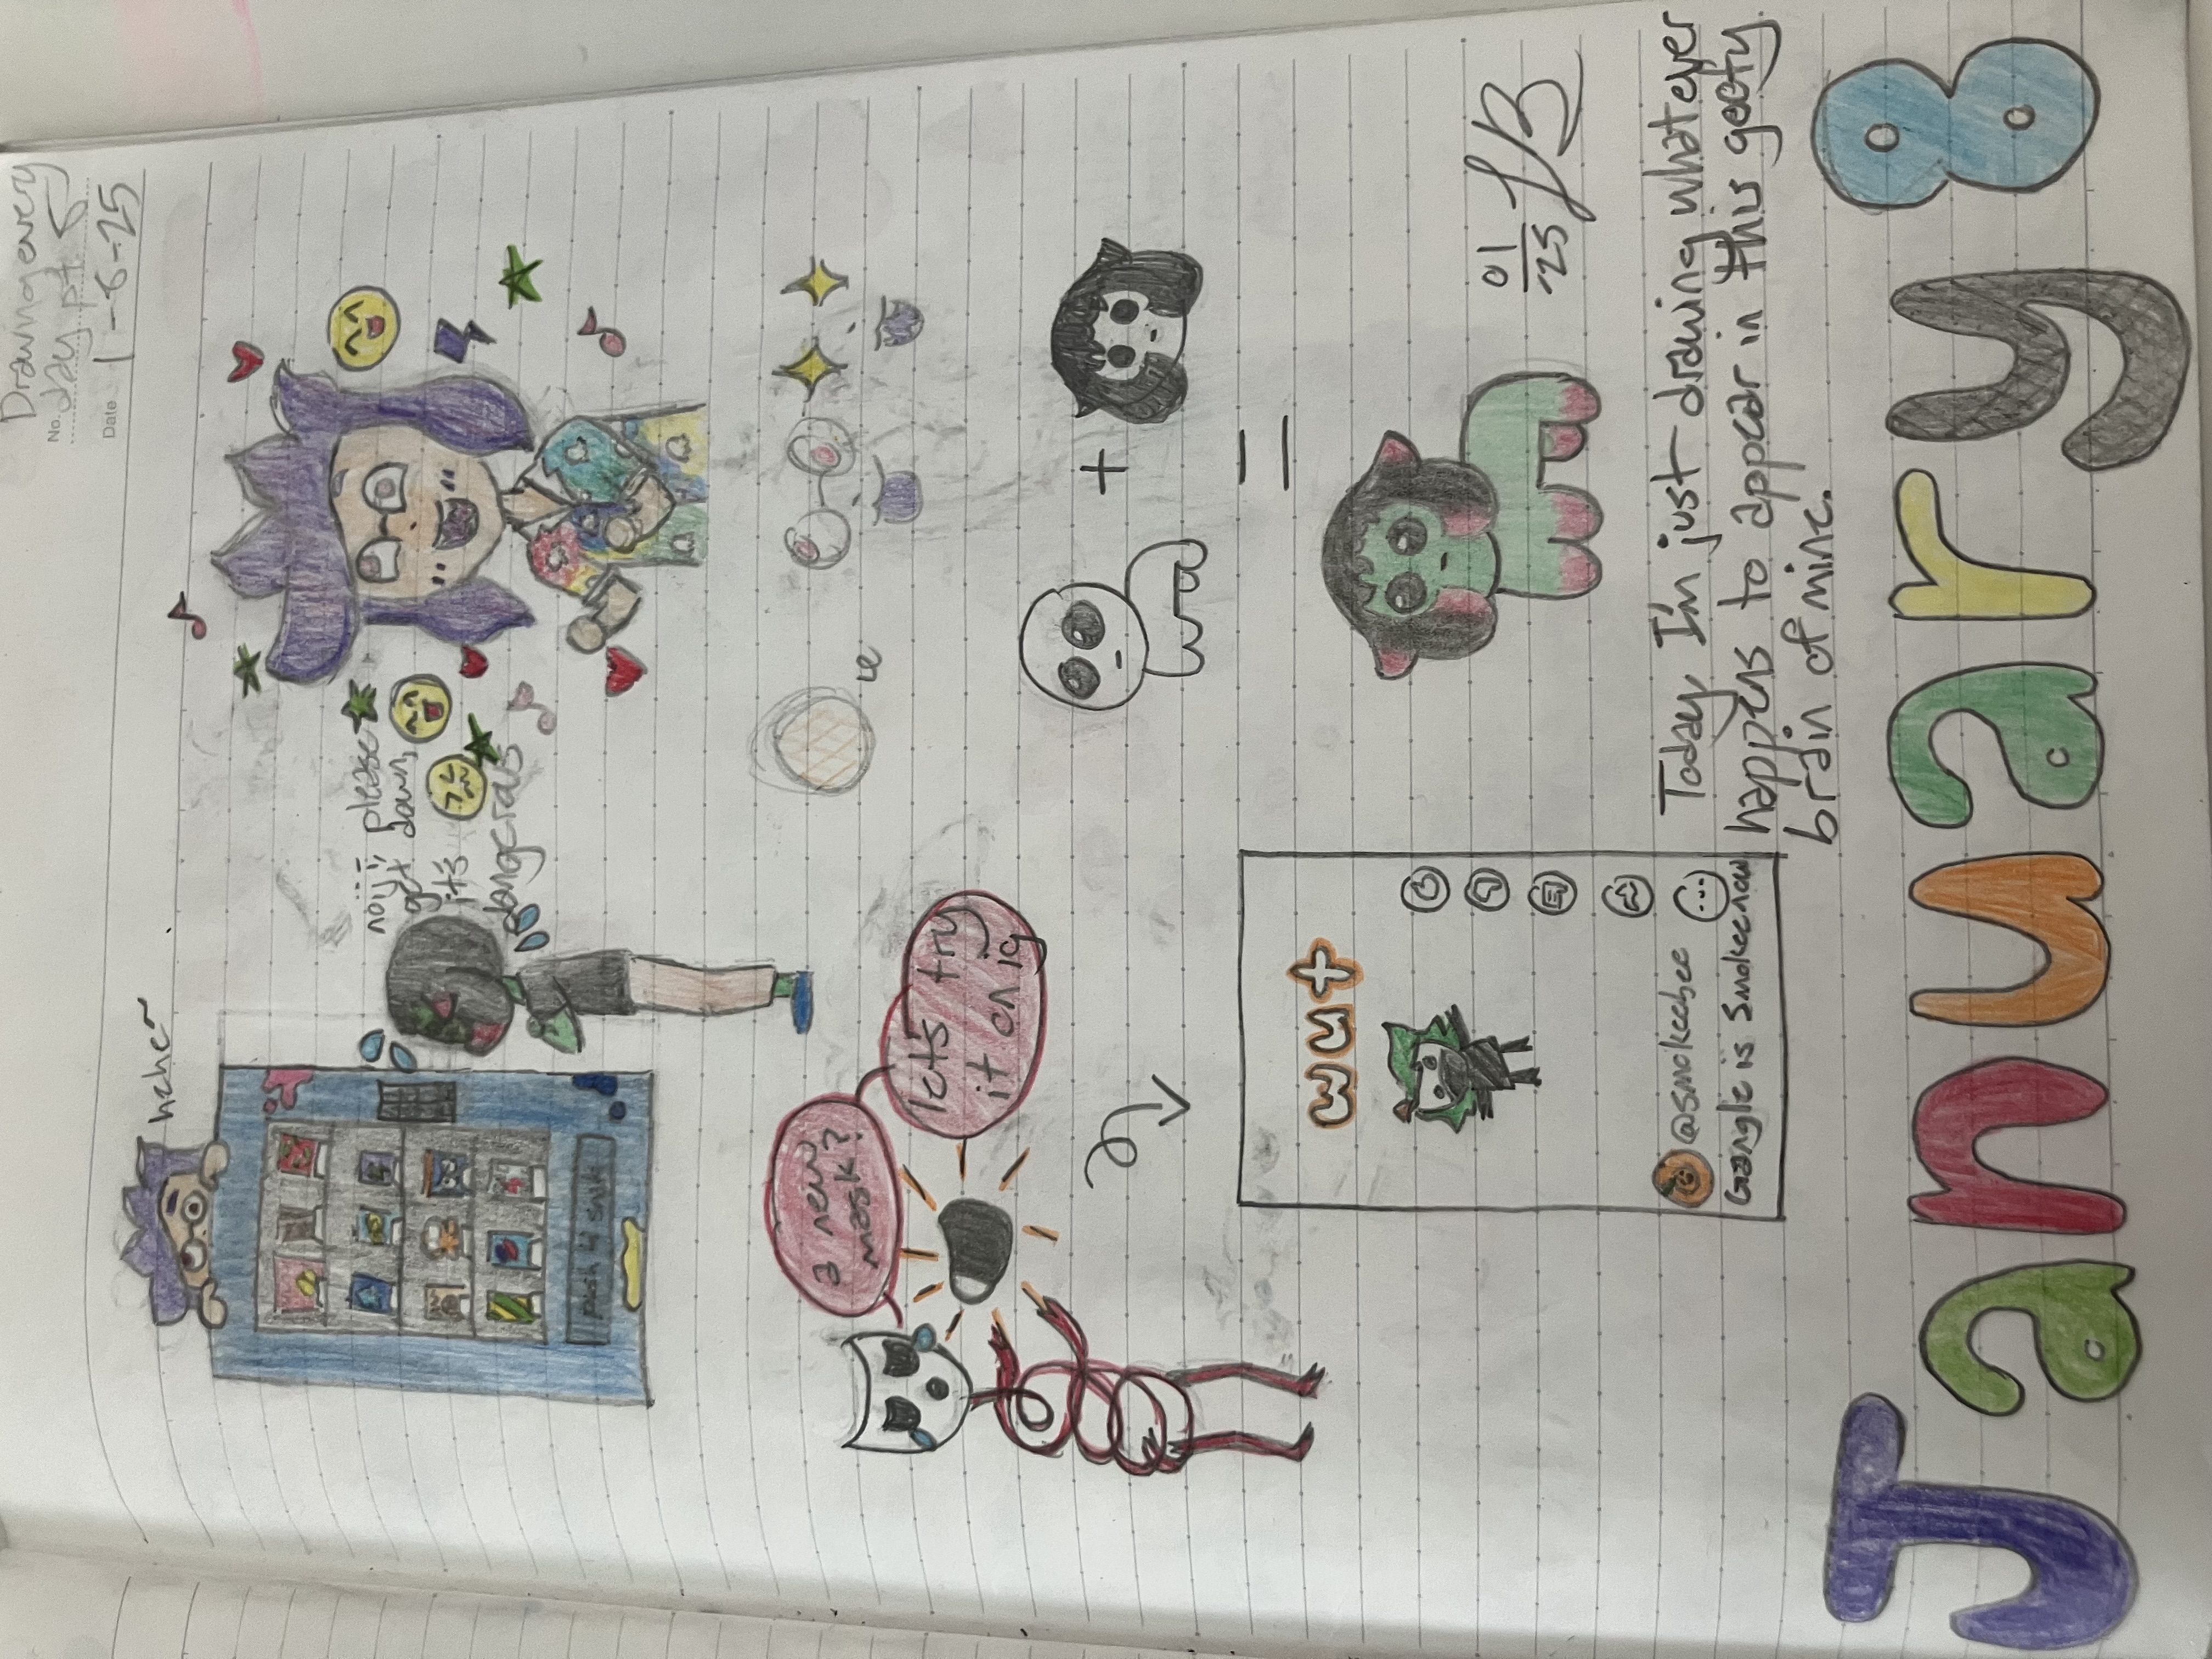 Drawing every
No. day pt. 8
Date 1-8-25
hehe~
please
get down,
it's
dangerous
push 4 snak
a new
mask?
let's try
it on ig
+
=
wut
@smokeebee
Gangle is Smokee now
01
-25 JB
Today, I'm just drawing whatever
happens to appear in this goofy
brain of mine.
January 8